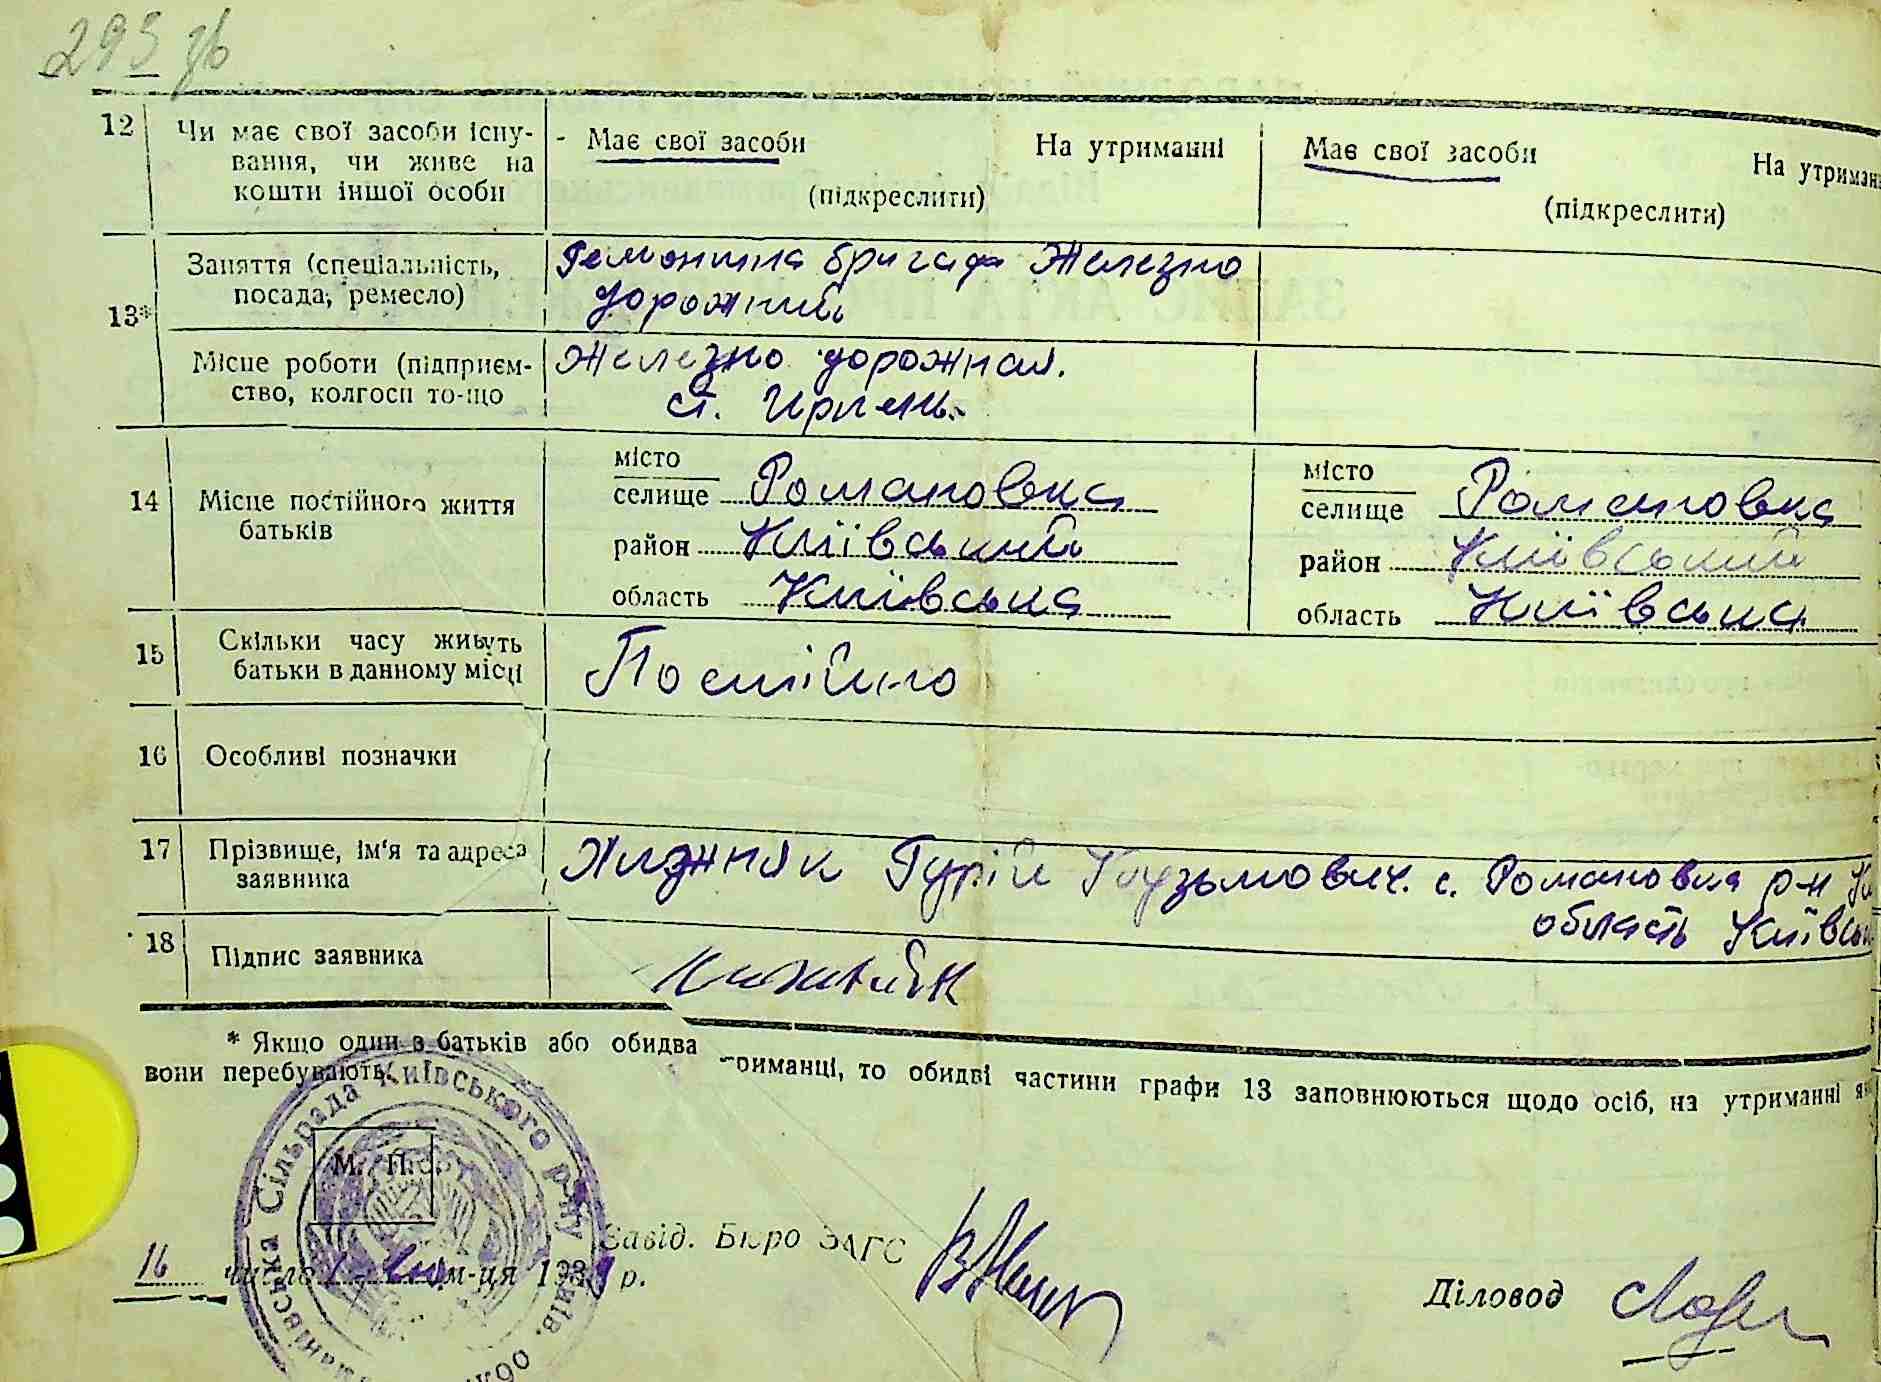 293 зв
12 Чи має свої засоби існу-
вання, чи живе на
кошти іншої особи
Має свої засоби На утриманні
(підкреслити)
Має свої засоби На утриман
(підкреслити)
13* Заняття (спеціальність,
посада, ремесло)
Ремонтна бригада Железно
дорожний
Місце роботи (підприєм-
ство, колгосп то-що
Железно дорожная.
ст. Ирпень.
14 Місце постійного життя
батьків
місто
селище Романовка
район Київський
область Київська
місто
селище Романовка
район Київський
область Київська
15 Скільки часу живуть
батьки в данному місці
Постійно
16 Особливі позначки
17 Прізвище, ім'я та адреса
заявника
Хижняк Гурій Кузьмович. с. Романовка р-н Ки
область Київськ
18 Підпис заявника
* Якщо один з батьків або обидва
риманці, то обидві частини графи 13 заповнюються щодо осіб, на утриманні як
вони перебувають.
манівська Сільрада Київського р-ну Київ. обл.
М. П.
Завід. Бюро ЗАГС
16 число м-ця 193 р.
Діловод